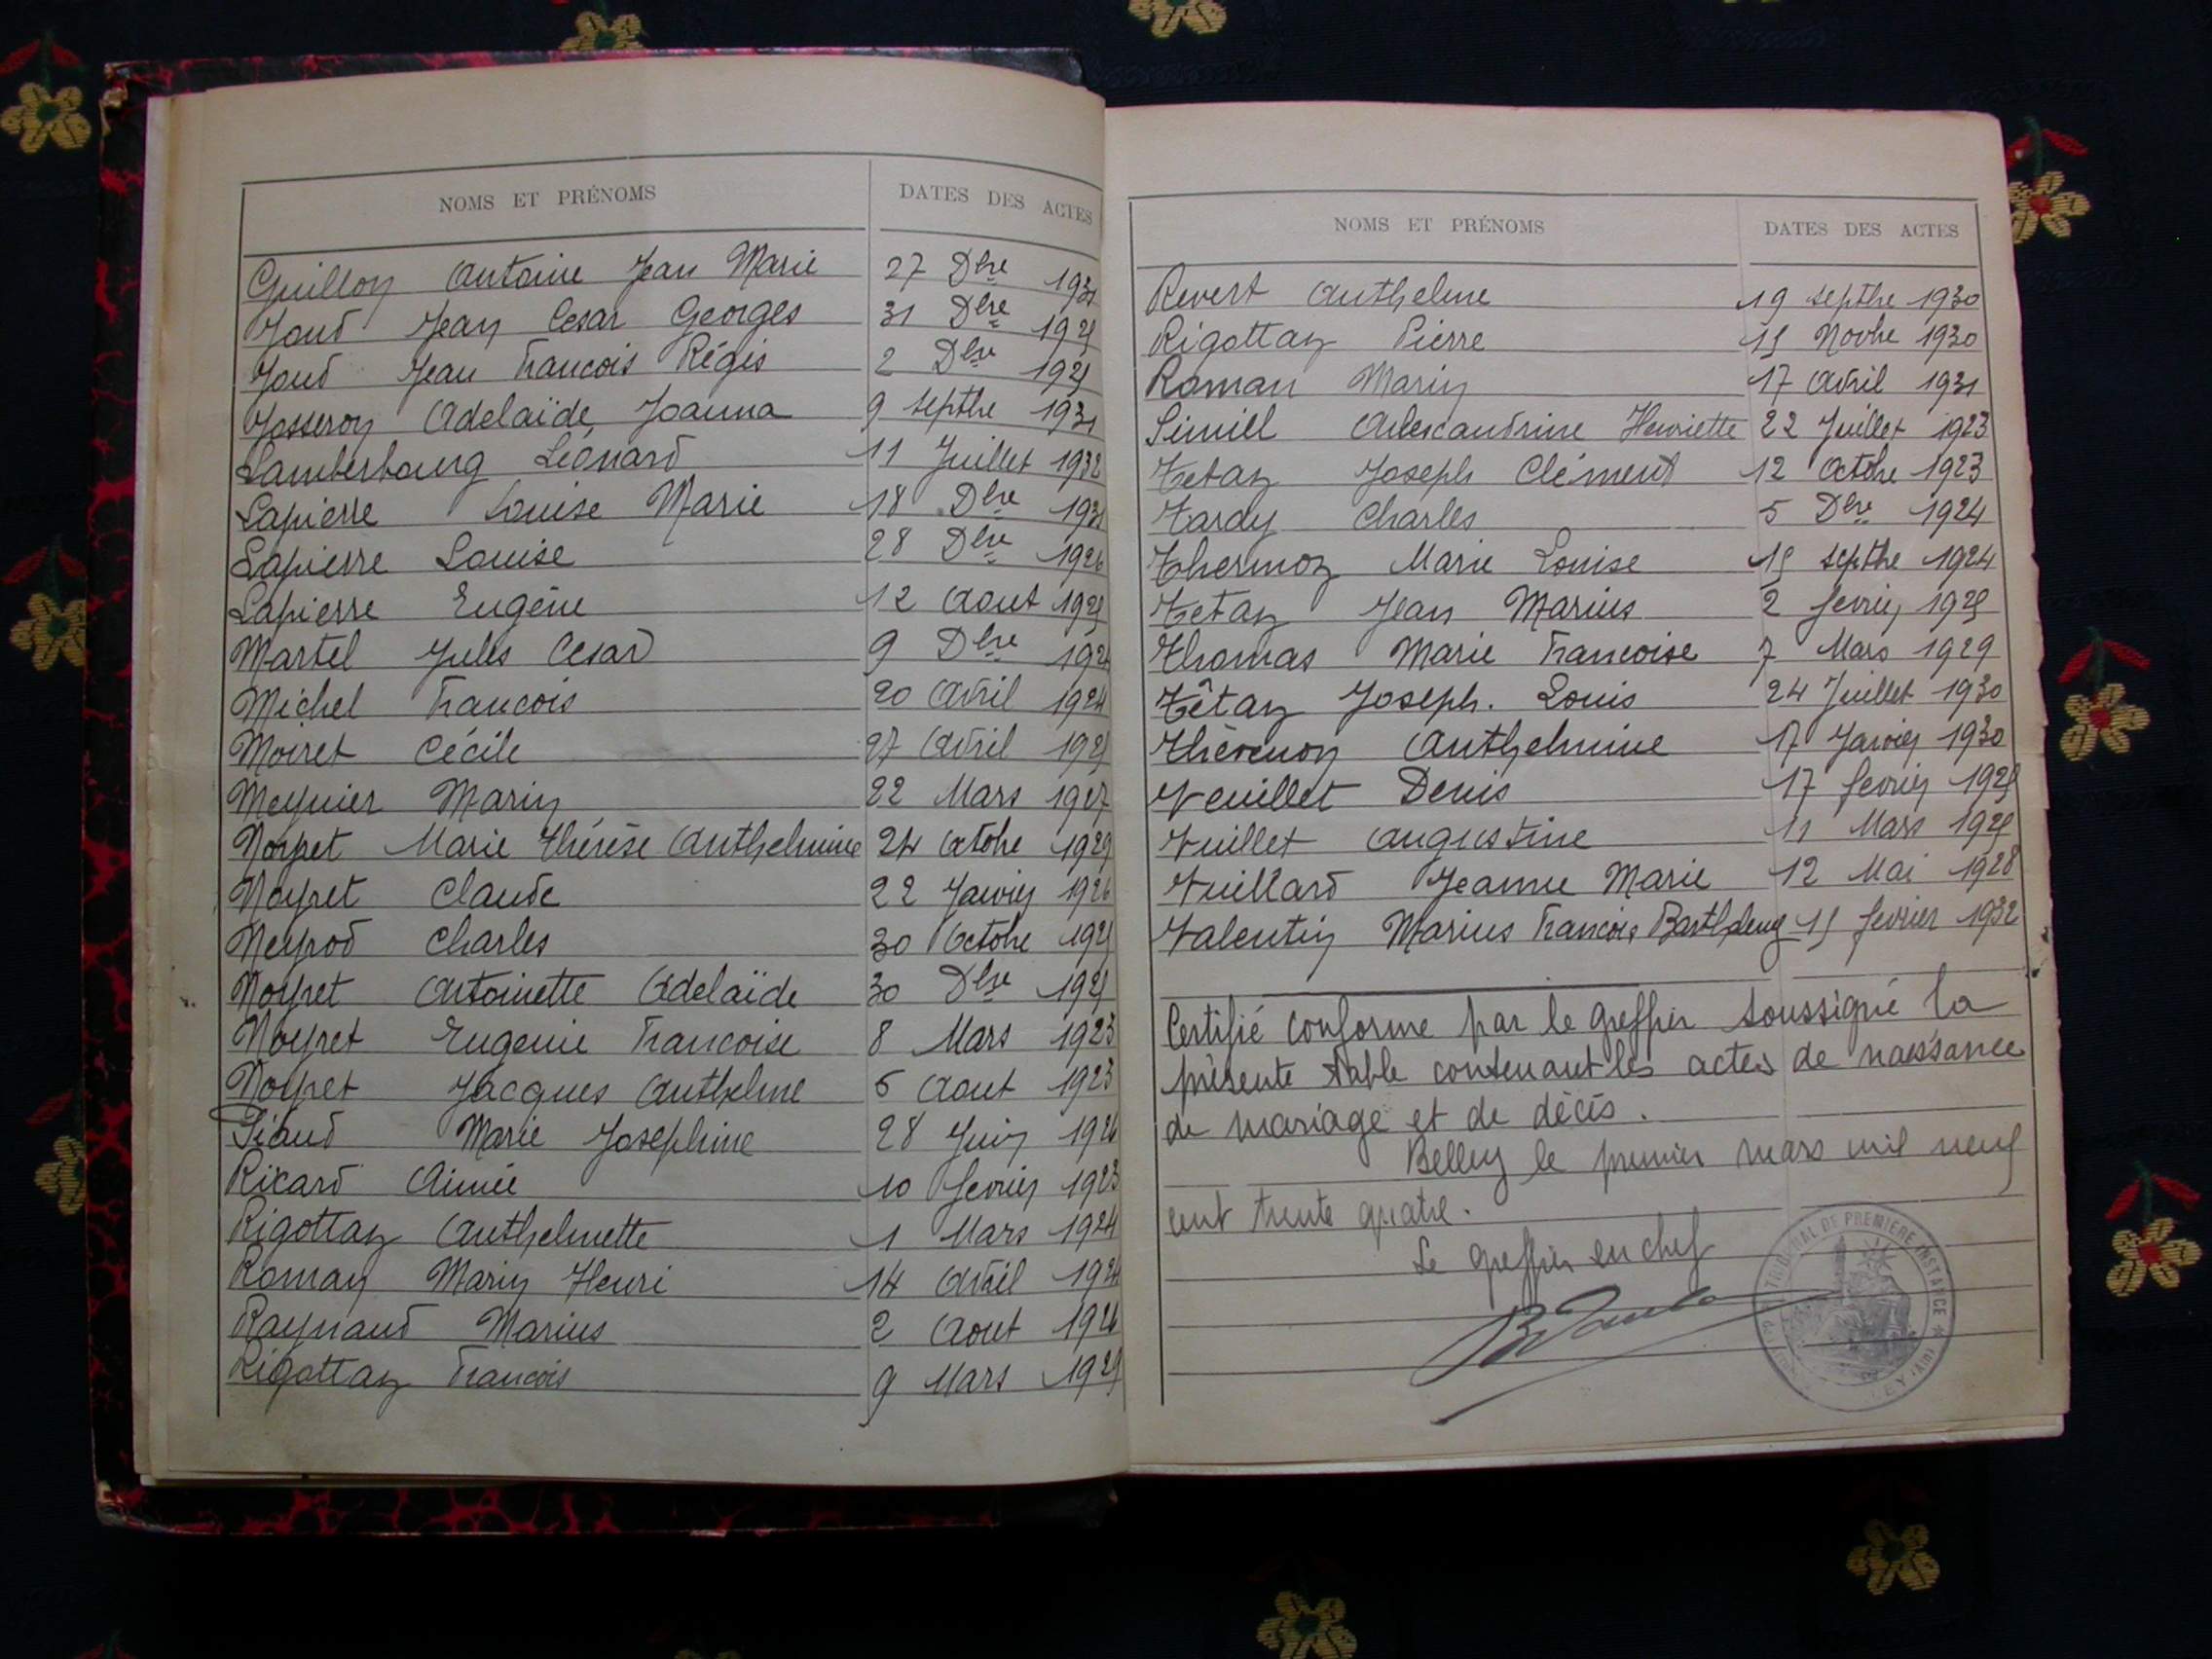 NOMS ET PRÉNOMS DATES DES ACTES
Guillon Antoine Jean Marie 27 Dbre 1931
Joud Jean Cesar Georges 31 Dbre
Joud Jean Francois Régis 2 Dbre
Josseron Adelaïde Joanna 9 septbre 1931
Lamberbourg Léonard 11 Juillet 1932
Lapierre Louise Marie 18 Dbre 1931
Lapierre Louise 28 Dbre 1926
Lapierre Eugène 12 Aout
Martel Jules Cesar 9 Dbre
Michel Francois 20 Avril 1924
Moiret Cécile 27 Avril
Meynier Marin 22 Mars 1927
Noyret Marie Thérèse Anthelmine 24 Octobre 1929
Noyret Claude 22 Janvier 1926
Neyrod Charles 30 Octobre
Noyret Antoinette Adelaïde 30 Dbre
Noyret Eugenie Francoise 8 Mars 1923
Noyret Jacques Anthelme 6 Aout 1923
Piaud Marie Josephine 28 Juin 1926
Ricard Aimée 10 fevrier 1923
Rigottaz Anthelmette 1 Mars 1924
Roman Marin Henri 14 Avril
Raynaud Marius 2 Aout 1926
Rigottaz Francois 9 Mars
NOMS ET PRÉNOMS DATES DES ACTES
Revert Anthelme 19 septbre 1930
Rigottaz Pierre 15 Novbre 1930
Roman Marin 17 Avril 1931
Simill Alexandrine Henriette 22 Juillet 1923
Tetaz Joseph Clément 12 Octbre 1923
Tardy Charles 5 Dbre 1924
Thermoz Marie Louise 15 septbre 1924
Tetaz Jean Marius 2 fevrier 1925
Thomas Marie Francoise 7 Mars 1929
Têtaz Joseph. Louis 24 Juillet 1930
Thévenon Anthelmine 17 Janvier 1930
Veuillet Denis 17 fevrier 1925
Vuillet Augustine 11 Mars 1925
Vuillard Jeanne Marie 12 Mai 1928
Valentin Marius Francois Barthélemy 15 fevrier 1932
Certifié conforme par le greffier soussigné la
présente table contenant les actes de naissance
de mariage et de décès.
Belley le premier mars mil neuf
cent trente quatre.
Le greffier en chef
TRIBUNAL DE PREMIERE INSTANCE (AIN)